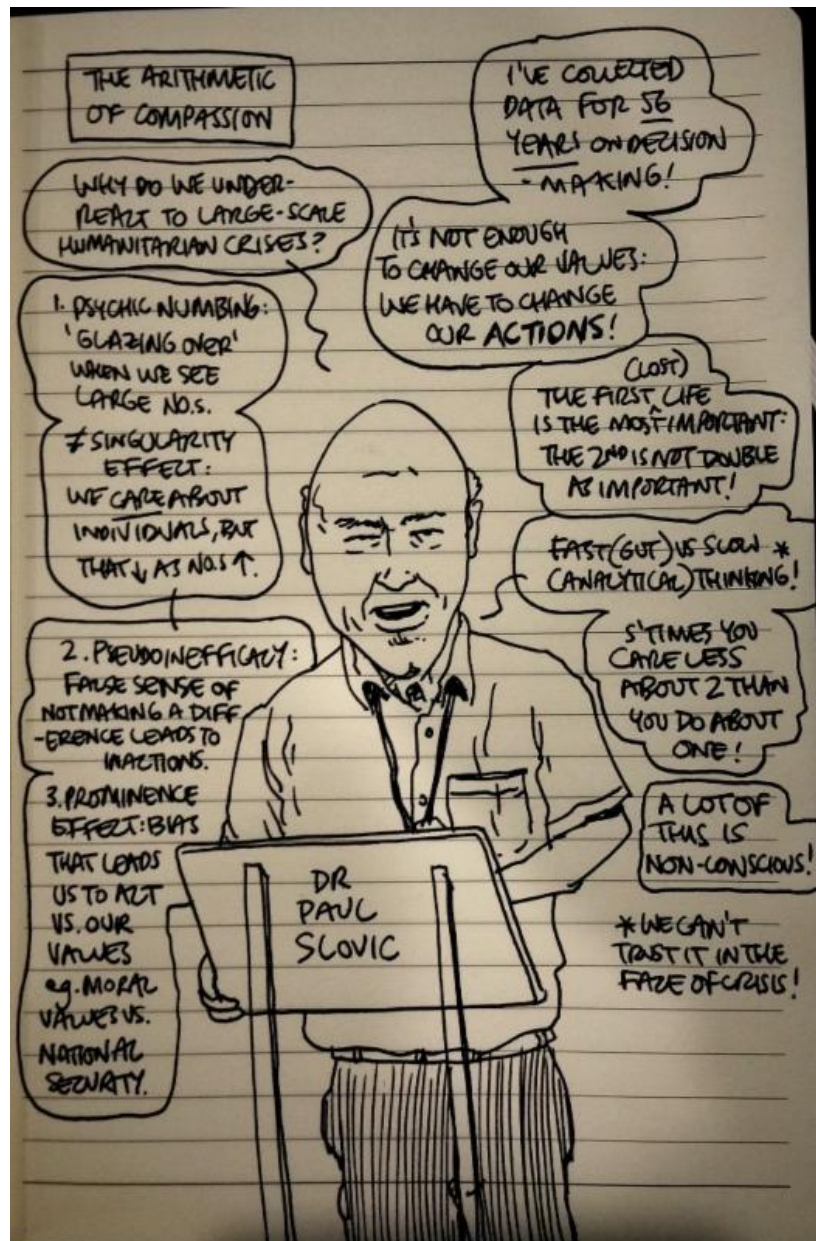 THE ARITHMETIC
OF COMPASSION
WHY DO WE UNDER-
REACT TO LARGE-SCALE
HUMANITARIAN CRISES?
1. PSYCHIC NUMBING:
'GLAZING OVER'
WHEN WE SEE
LARGE NO.S.
≠ SINGULARITY
EFFECT:
WE CARE ABOUT
INDIVIDUALS, BUT
THAT ↓ AS NO.S ↑.
2. PSEUDOINEFFICACY:
FALSE SENSE OF
NOT MAKING A DIFF
-ERENCE LEADS TO
INACTIONS.
3. PROMINENCE
EFFECT: BIAS
THAT LEADS
US TO ACT
VS. OUR
VALUES
eg. MORAL
VALUES VS.
NATIONAL
SECURITY.
I'VE COLLECTED
DATA FOR 56
YEARS ON DECISION
-MAKING!
IT'S NOT ENOUGH
TO CHANGE OUR VALUES:
WE HAVE TO CHANGE
OUR ACTIONS!
(LOST)
THE FIRST LIFE
IS THE MOST IMPORTANT:
THE 2ND IS NOT DOUBLE
AS IMPORTANT!
FAST (GUT) VS SLOW *
(ANALYTICAL) THINKING!
S'TIMES YOU
CARE LESS
ABOUT 2 THAN
YOU DO ABOUT
ONE!
A LOT OF
THIS IS
NON-CONSCIOUS!
* WE CAN'T
TRUST IT IN THE
FACE OF CRISIS!
DR
PAUL
SLOVIC